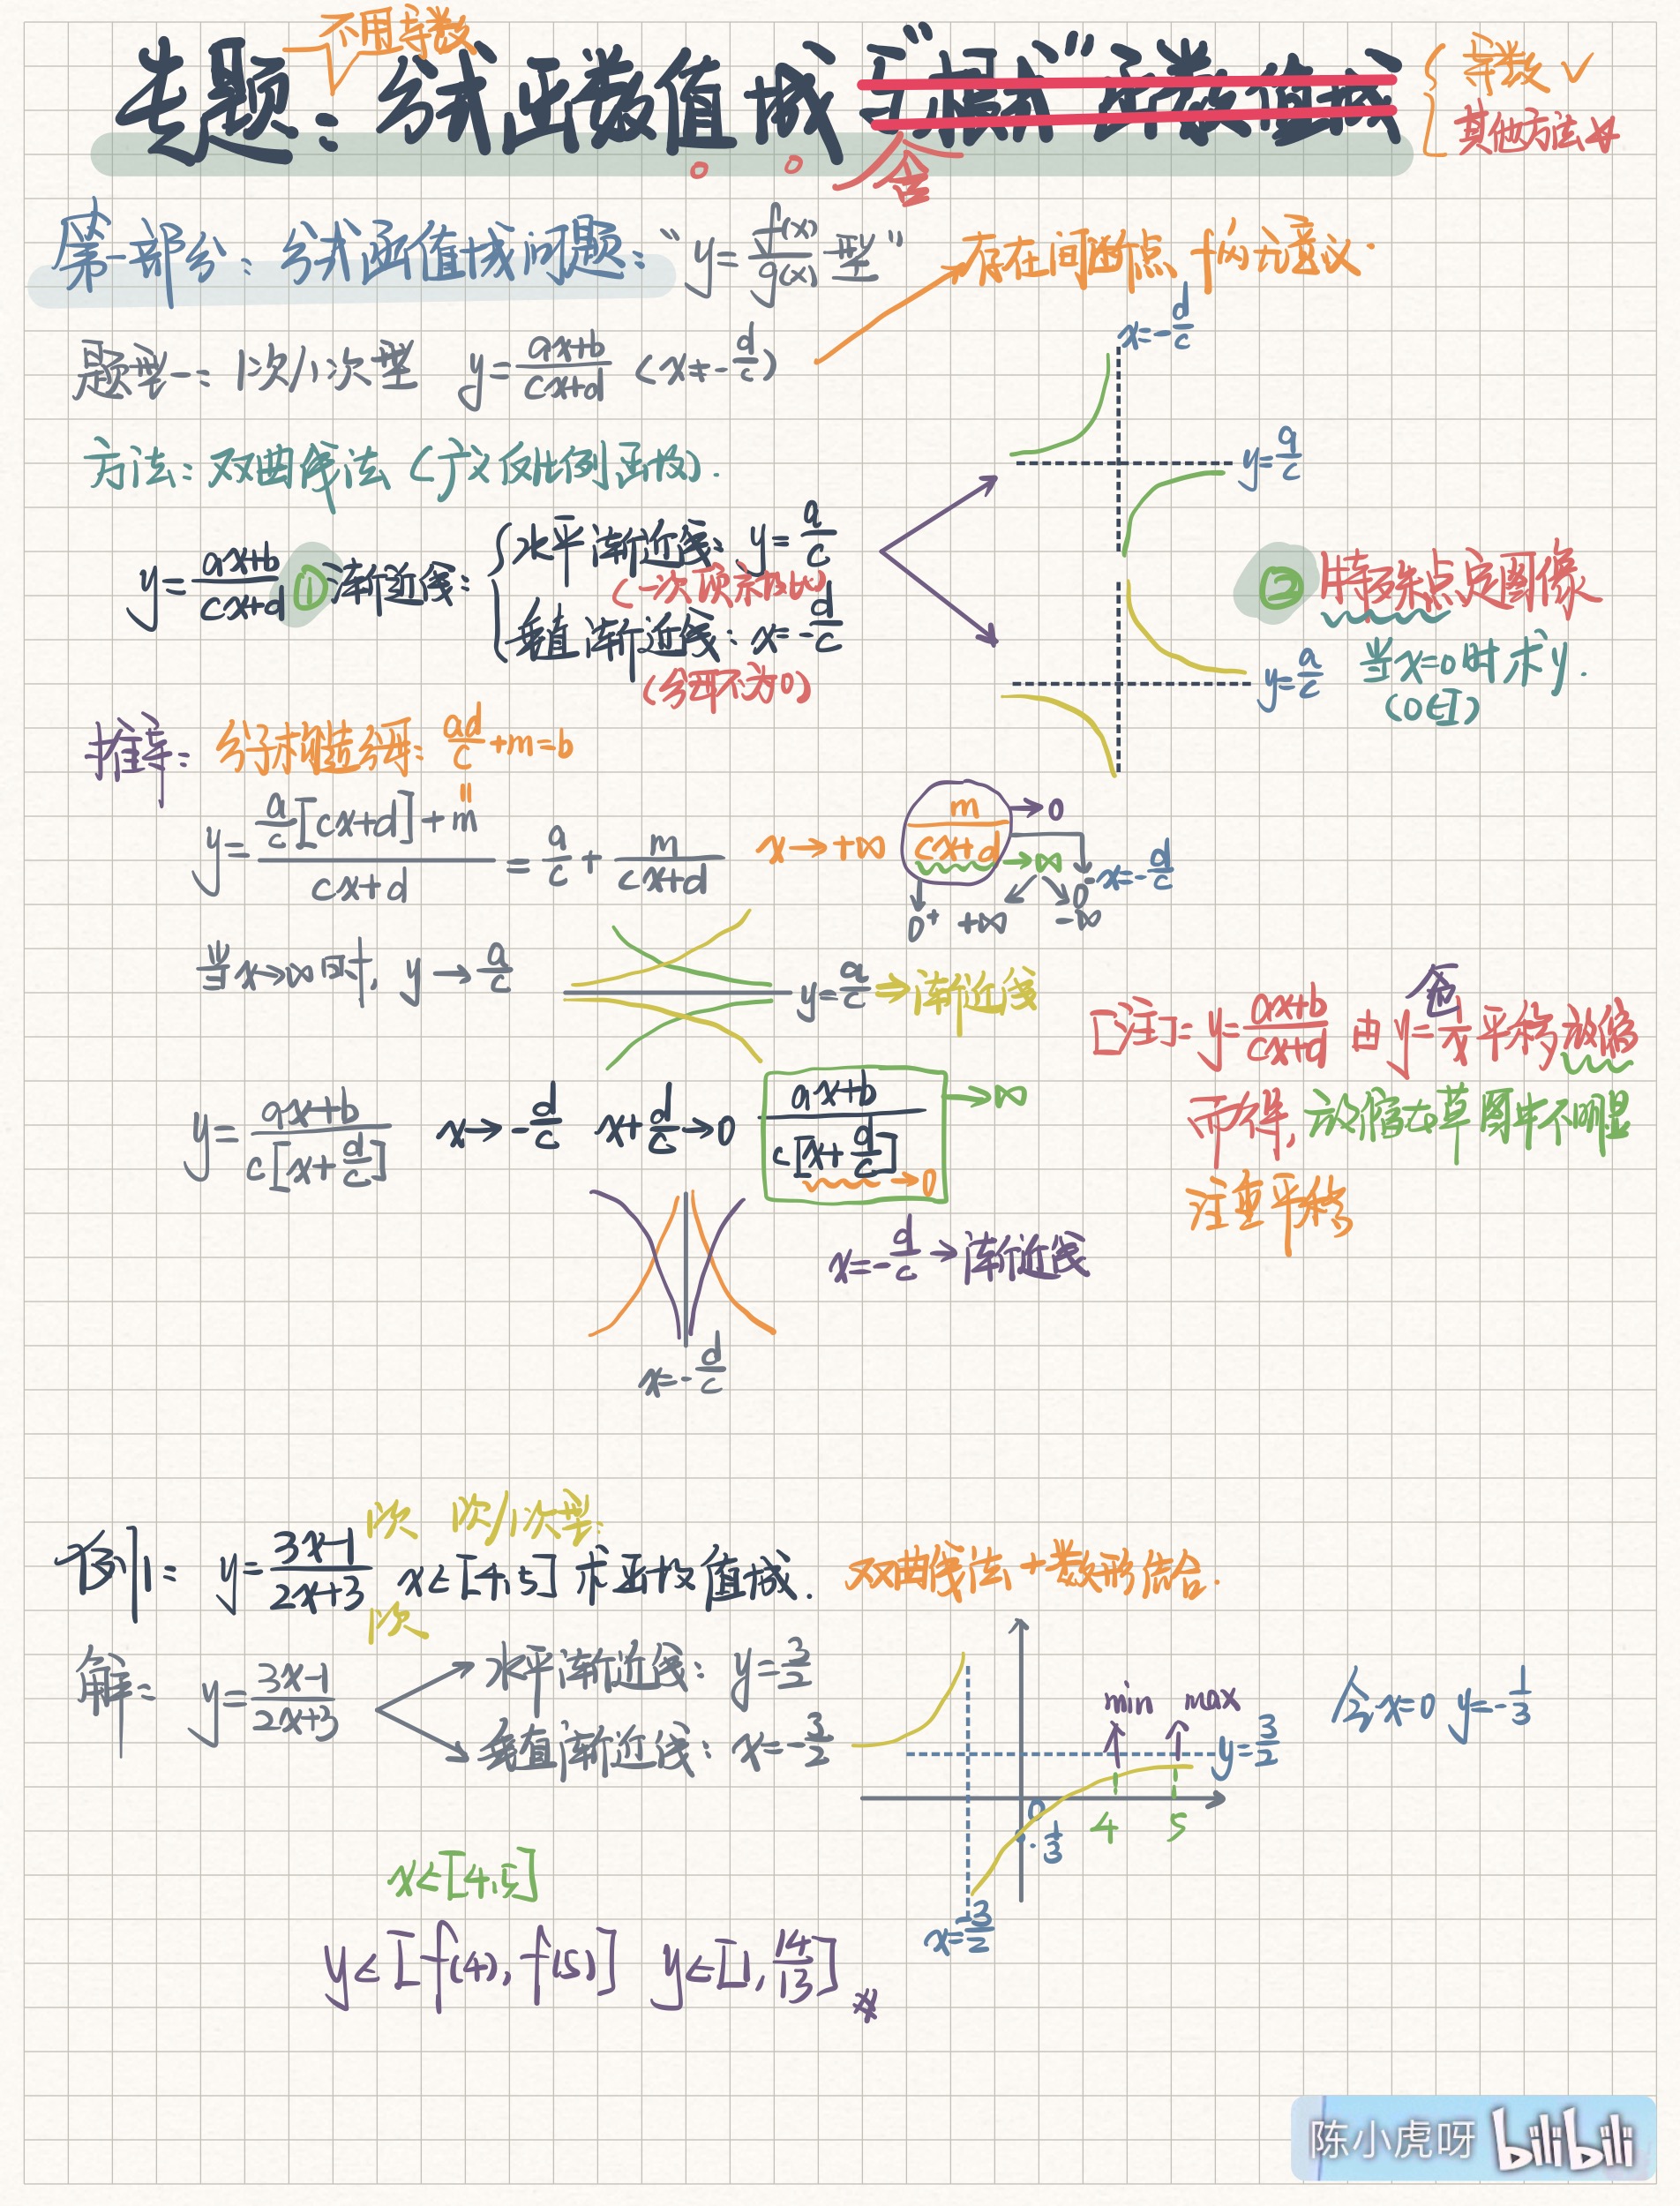 不用导数
专题：分式函数值域与"根式"函数值域
导数 ✓
其他方法
含
第一部分：分式函值域问题："y=f(x)/g(x)型"
存在间断点、内无意义.
题型一：1次/1次型 y=(ax+b)/(cx+d) (x≠-d/c)
x=-d/c
方法：双曲线法（广义反比例函数）.
y=a/c
y=(ax+b)/(cx+d) ①渐近线：
水平渐近线：y=a/c
（一次项系数比）
垂直渐近线：x=-d/c
（分母不为0）
②特殊点定图像
当x=0时求y.
(0∈I)
y=a/c
推导：分子构造分母：ad/c+m=b
y=(a/c[cx+d]+m)/(cx+d)=a/c+m/(cx+d)
x→+∞ m/(cx+d) →0
→∞
x=-d/c
0⁺ +∞ 0⁻ -∞
当x→∞时，y→a/c
y=a/c⇒渐近线
[注]：y=(ax+b)/(cx+d) 由y=1/x平移放缩
而得，放缩在草图中不明显
注重平移
y=(ax+b)/(c[x+d/c]) x→-d/c x+d/c→0 (ax+b)/(c[x+d/c]) →∞
→0
x=-d/c→渐近线
x=-d/c
1次 1次/1次型.
例1：y=(3x-1)/(2x+3) x∈[4,5] 求函数值域.
双曲线法+数形结合.
1次
解：y=(3x-1)/(2x+3)
水平渐近线：y=3/2
垂直渐近线：x=-3/2
min max
y=3/2
令x=0 y=-1/3
0
4 5
-1/3
x=-3/2
x∈[4,5]
y∈[f(4),f(5)] y∈[1,14/13] #
陈小虎呀 bilibili